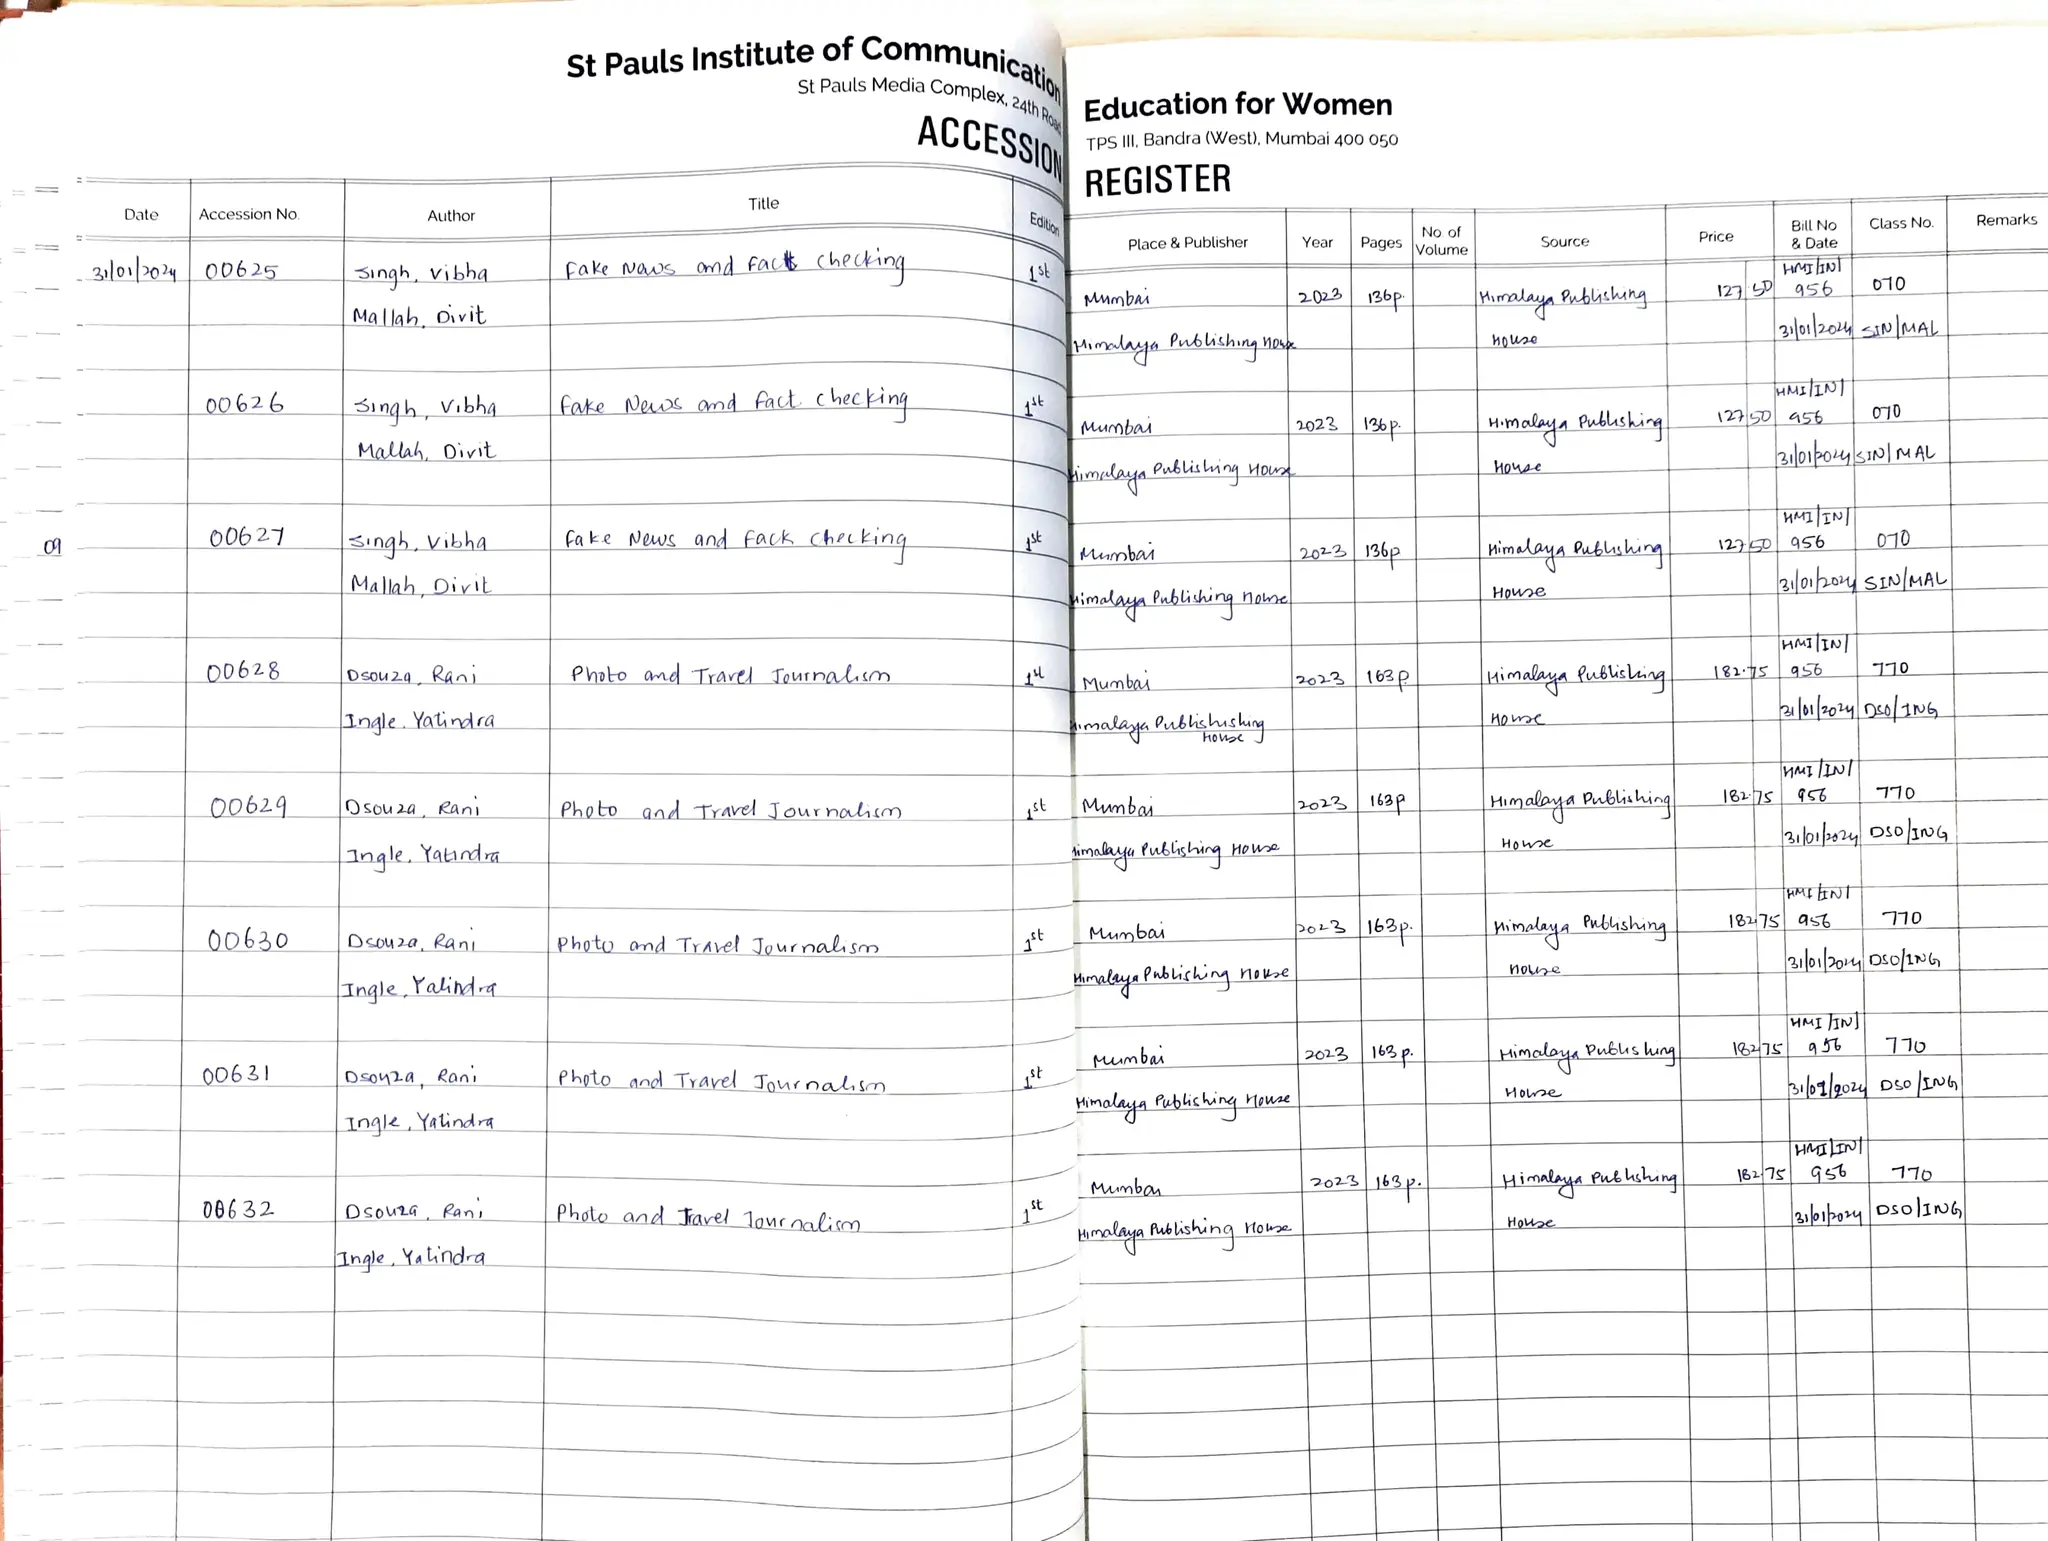 St Pauls Institute of Communication Education for Women
St Pauls Media Complex, 24th Road, TPS III, Bandra (West), Mumbai 400 050
ACCESSION REGISTER
Date Accession No. Author Title Edition Place & Publisher Year Pages No. of Volume Source Price Bill No & Date Class No. Remarks
31/01/2024 00625 Singh, Vibha Fake News and Fact checking 1st Mumbai 2023 136p. Himalaya Publishing 127 50 HMI/IN/ 956 070
Mallah, Divit Himalaya Publishing House House 31/01/2024 SIN/MAL
00626 Singh, Vibha Fake News and Fact checking 1st Mumbai 2023 136p. Himalaya Publishing 127 50 HMI/IN/ 956 070
Mallah, Divit Himalaya Publishing House House 31/01/2024 SIN/MAL
09 00627 Singh, Vibha Fake News and Fack checking 1st Mumbai 2023 136p Himalaya Publishing 127 50 HMI/IN/ 956 070
Mallah, Divit Himalaya Publishing House House 31/01/2024 SIN/MAL
00628 Dsouza, Rani Photo and Travel Journalism 1st Mumbai 2023 163p Himalaya Publishing 182.75 HMI/IN/ 956 770
Ingle, Yatindra Himalaya Publishishing House House 31/01/2024 DSO/ING
00629 Dsouza, Rani Photo and Travel Journalism 1st Mumbai 2023 163p Himalaya Publishing 182 75 HMI/IN/ 956 770
Ingle, Yatindra Himalaya Publishing House House 31/01/2024 DSO/ING
00630 Dsouza, Rani Photo and Travel Journalism 1st Mumbai 2023 163p. Himalaya Publishing 182 75 HMI/IN/ 956 770
Ingle, Yatindra Himalaya Publishing House House 31/01/2024 DSO/ING
00631 Dsouza, Rani Photo and Travel Journalism 1st Mumbai 2023 163p. Himalaya Publishing 182 75 HMI/IN/ 956 770
Ingle, Yatindra Himalaya Publishing House House 31/01/2024 DSO/ING
00632 Dsouza, Rani Photo and Travel Journalism 1st Mumbai 2023 163p. Himalaya Publishing 182 75 HMI/IN/ 956 770
Ingle, Yatindra Himalaya Publishing House House 31/01/2024 DSO/ING